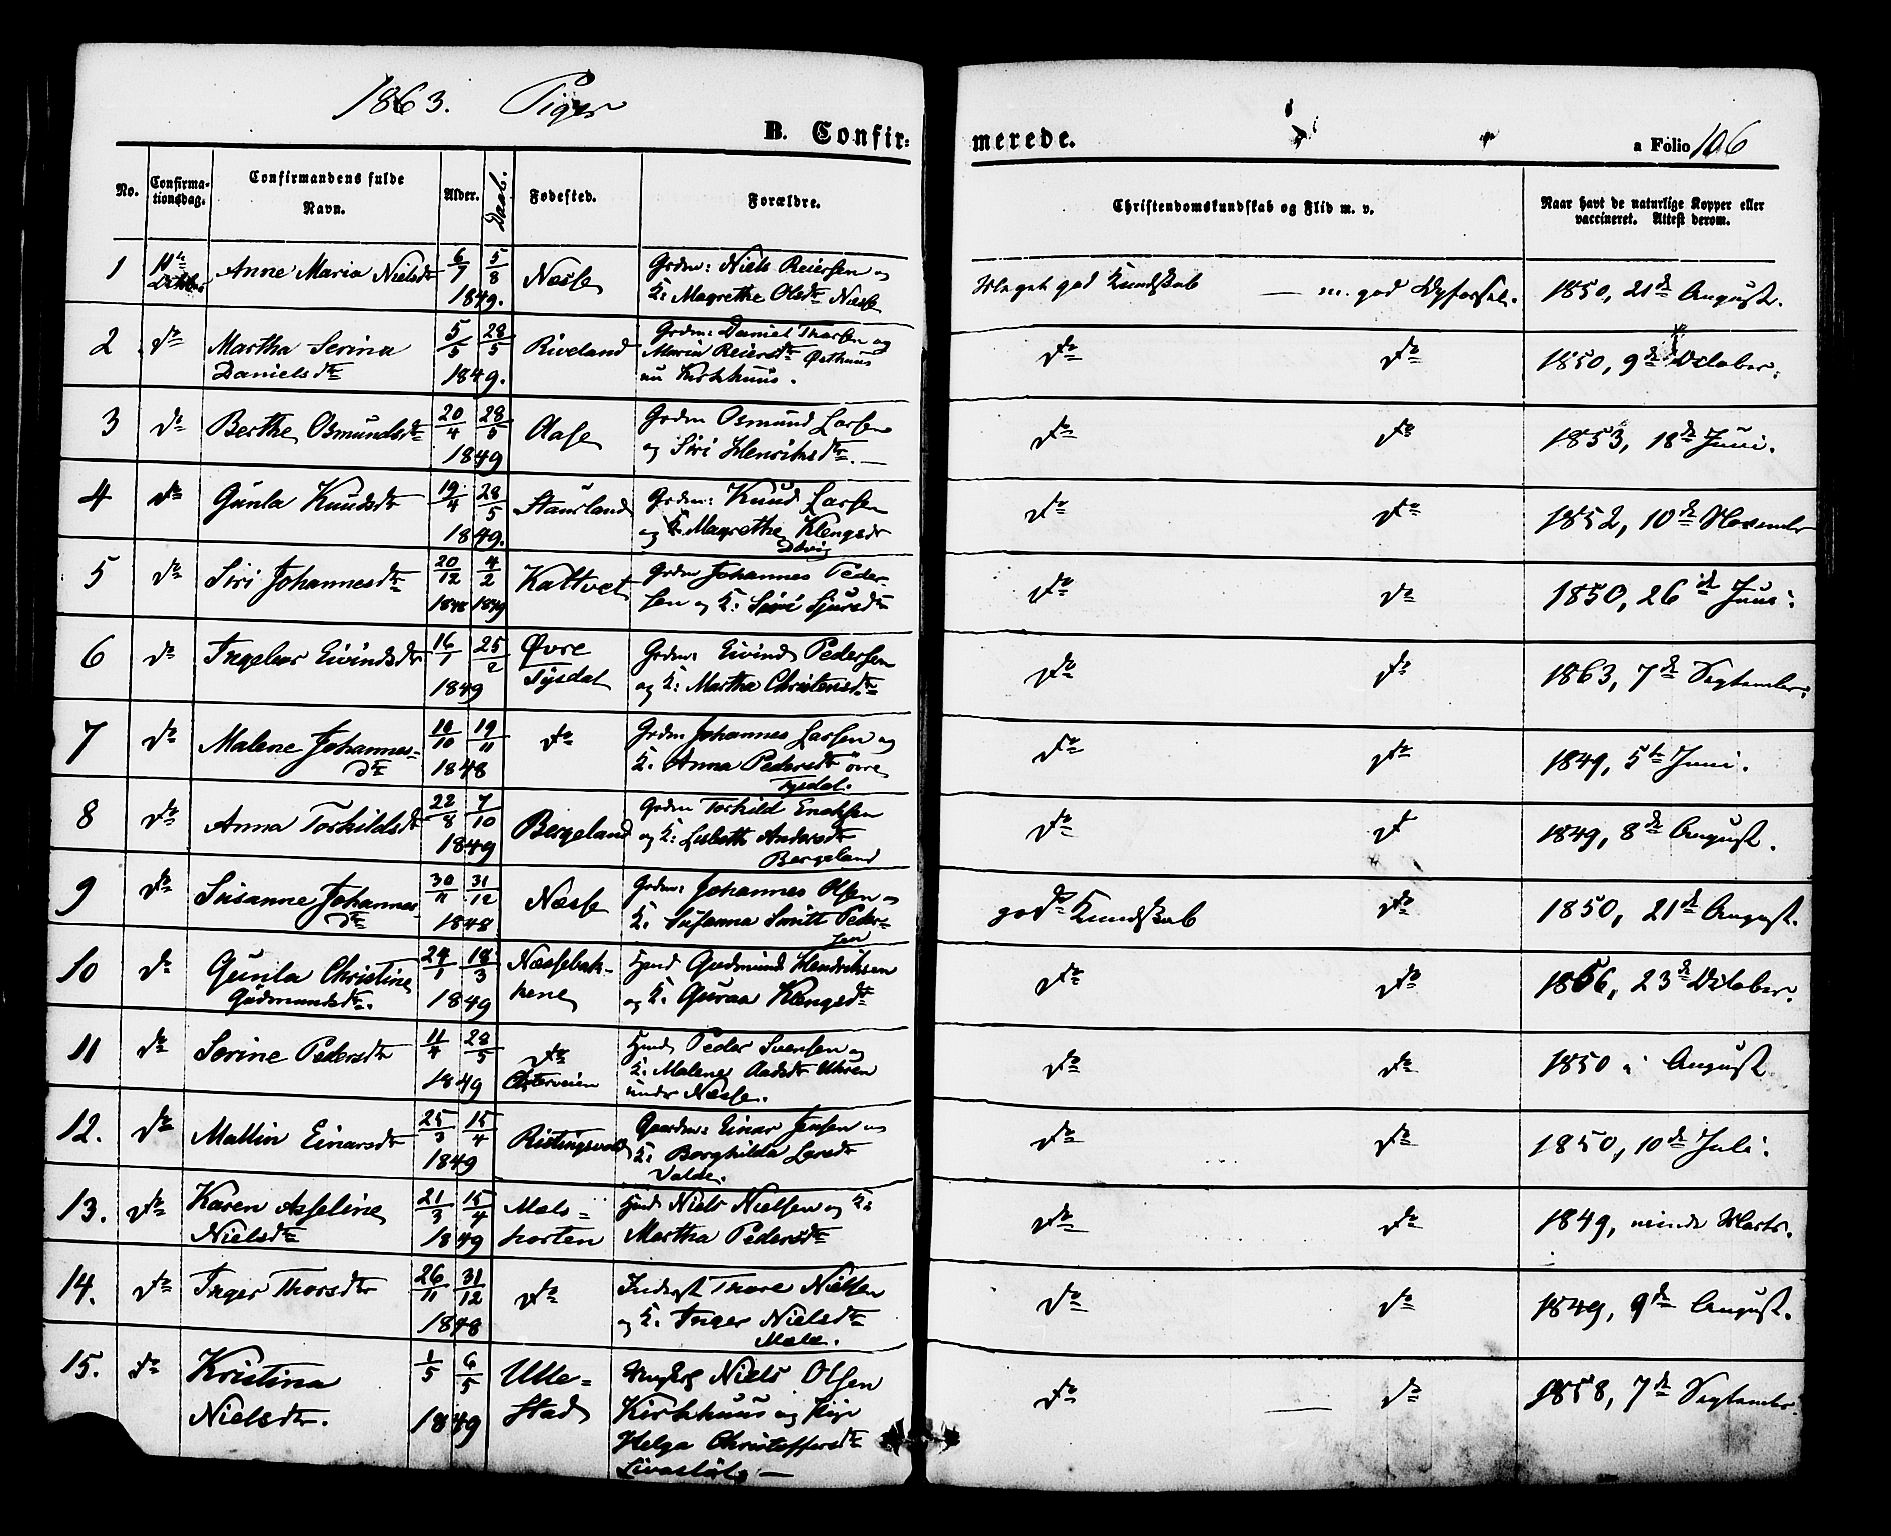 1863. Piger
B. Confir-
merede.
a Folio 106
No. Confirma-tionsdag. Confirmandens fulde Navn. Alder. Daab. Fødested. Forældre. Christendomskundskab og Flid m. v. Naar havt de naturlige Kopper eller vaccineret. Attest derom.
1 Anne Maria Nielsdtr 6/7 5/8 1849. Næsse Grdm: Niels Reiersen og K: Magrethe Olsdtr Næsse Meget god Kundskab — m. god Opførsel. 1850, 21de August.
2 do Martha Serina Danielsdtr 5/5 28/5 1849. Riveland Grdm: Daniel Thorsen og Maria Reiersdtr Østhuus nu Kirkhuus. do do 1850, 9de October.
3 do Berthe Osmundsdtr 20/4 28/5 1849 Aase Grdm Osmund Larsen og Siri Henriksdtr. — do do 1853, 18de Juni.
4 do Gunla Knudsdtr 19/4 28/5 1849. Staurland Grdm: Knud Larsen og K. Magrethe Klengsdtr do do 1852, 10de November
5 do Siri Johannesdtr 20/12 4/2 1848 1849 Kattvet Grdm Johannes Peder-sen og K: Siri Sjursdtr do do 1850, 26de Juni.
6 do Ingebor Eivindsdtr 16/1 25/2 1849 Øvre Tysdal Grdm: Eivind Pedersen og K: Martha Christensdtr do do 1863, 7de September.
7 do Malene Johannes-dtr 10/10 19/11 1848 do Grdm Johannes Larsen og K. Anna Pedersdtr øvre Tysdal. do do 1849, 5te Juni.
8 do Anna Torkildsdtr 22/8 7/10 1849 Bergeland Grdm Torkild Enoksen og K: Lisbeth Andersdtr Bergeland do do 1849, 8de August.
9 do Susanne Johannes-dtr 30/11 31/12 1848 Næsse Grdm: Johannes Olsen og K. Susanna Smitt Peder-sen god Kundskab do 1850, 21de August.
10 do Gunla Christine Gudmundsdtr. 24/1 18/3 1849 Næssebak-kene Hmd Gudmund Hendriksen og K. Guraa Klengsdtr do do 1856, 23de October.
11 do Serine Pedersdtr 11/4 28/5 1849 do Hmd Peder Svensen og K. Malene Aadsdtr Uhren under Næsse. do do 1850 i August
12. do Mallin Einarsdtr 25/3 15/4 1849 Ristingsvold Gaardm: Einar Jensen og K: Borghilda Larsdtr Valde. do do 1850, 10de Juli.
13. do Karen Asseline Nielsdtr 21/3 15/4 1849 Mæls-horten Hmd Niels Nielsen og K: Martha Pedersdtr do do 1849, Marts.
14. do Inger Thorsdtr 26/11 31/12 1848 do Inderst Thore Nielsen og K. Inger Nielsdtr Mæle. do do 1849, 9de August.
15. do Kristina Nielsdtr. 1/5 6/5 1849 Ulle-stad Ungkrl Niels Olsen Kirkhuus og Pige Helga Christoffersdtr do — do 1858, 7de September.